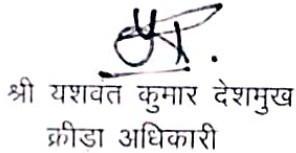 श्री यशवंत कुमार देशमुख
क्रीडा अधिकारी